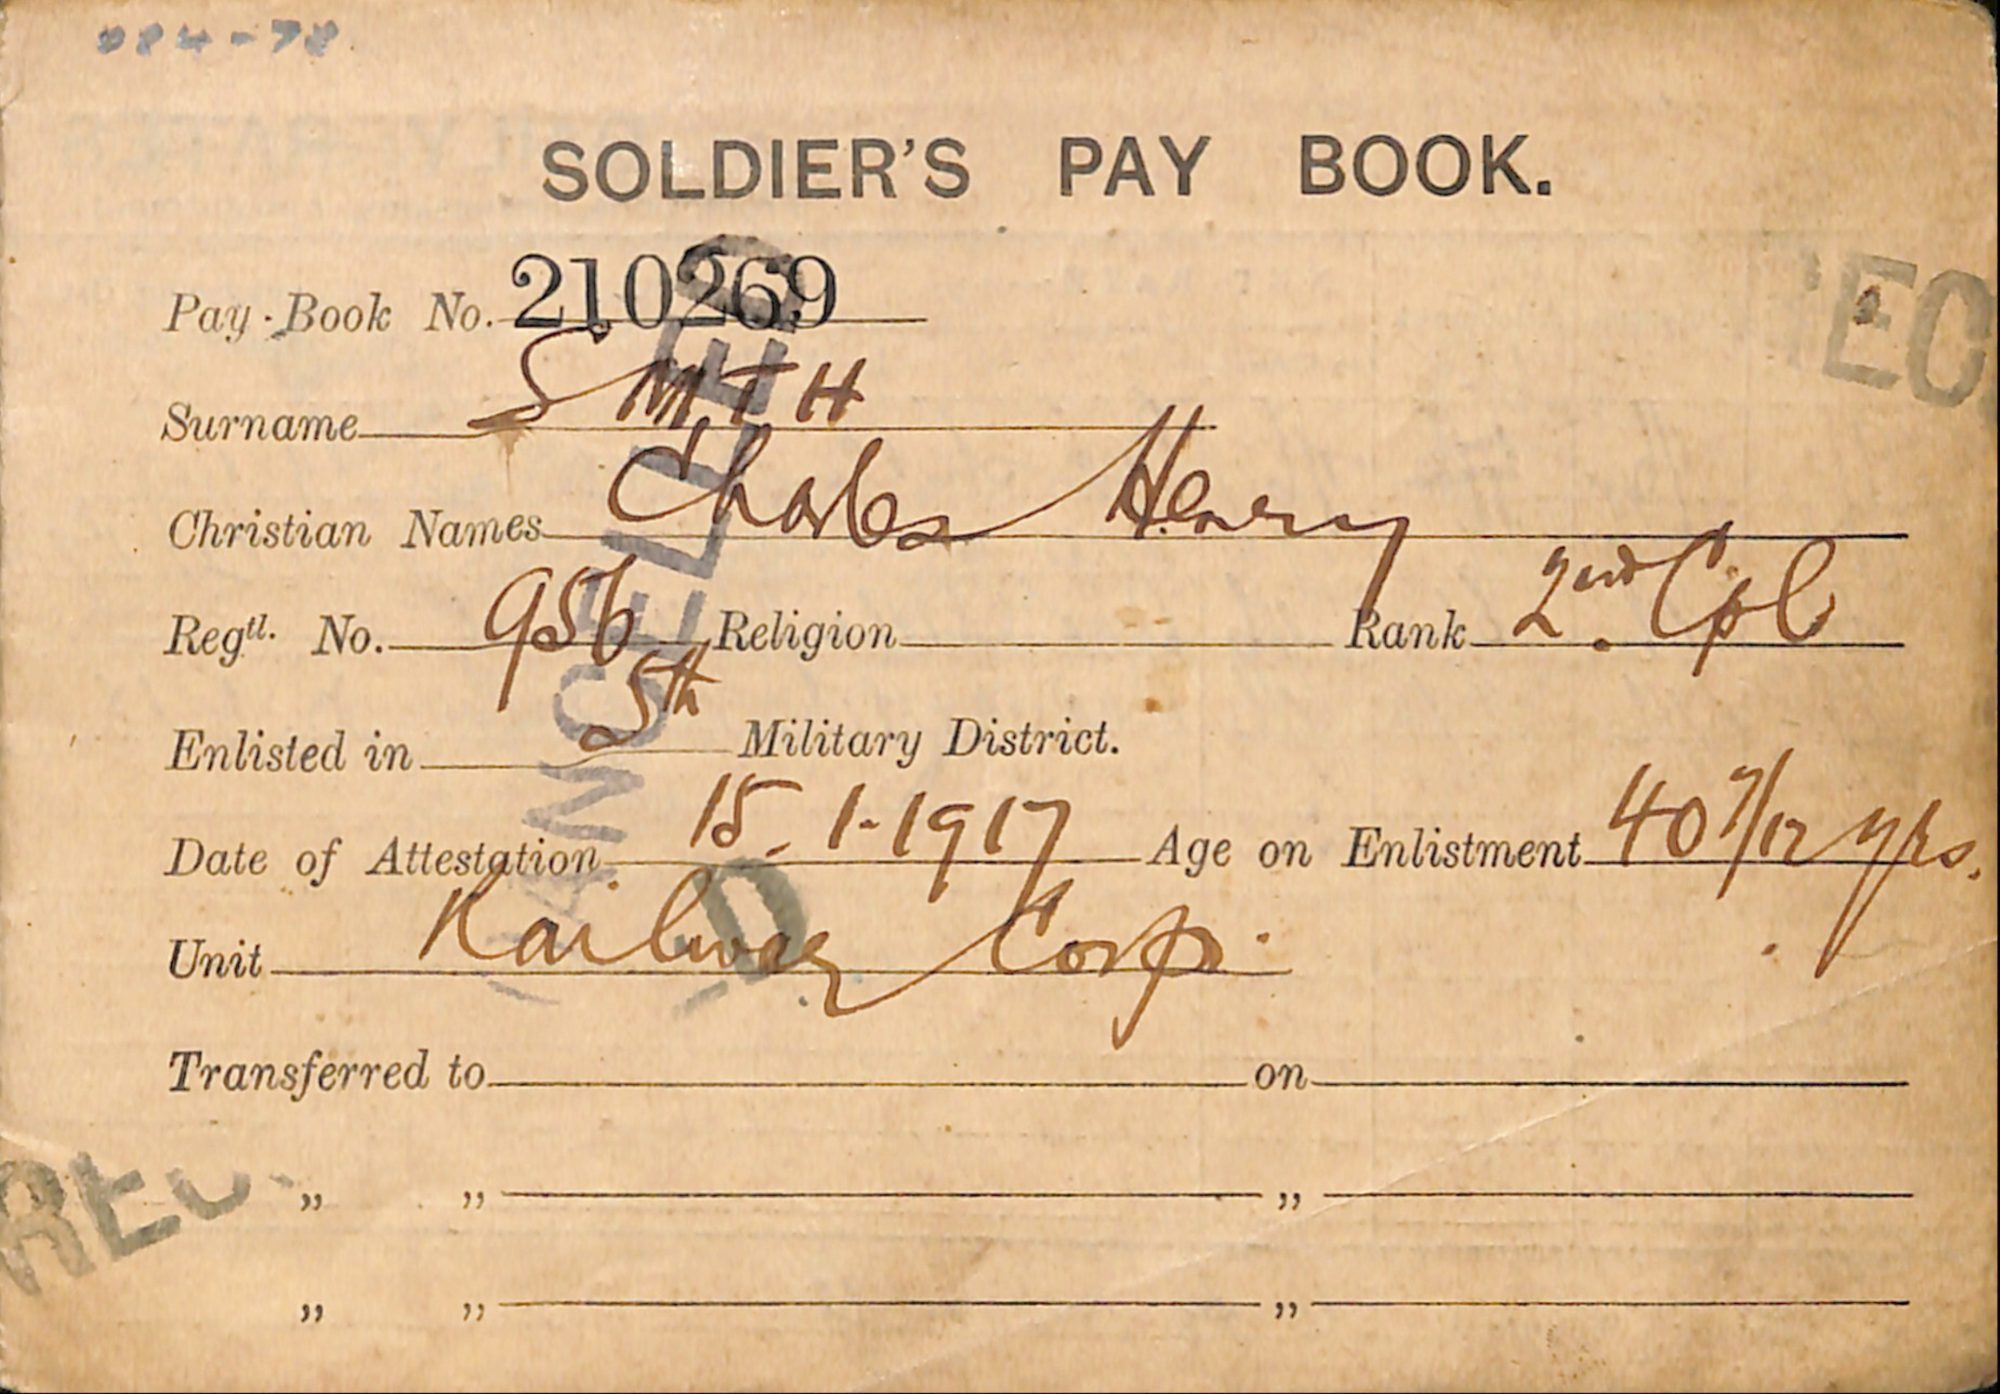 984-78
SOLDIER'S PAY BOOK.
Pay-Book No. 210269
Surname SMITH
Christian Names Charles Henry
Regtl. No. 956 Religion Rank 2nd. Cpl
Enlisted in 5th Military District.
Date of Attestation 15.1.1917 Age on Enlistment 40 7/12 yrs.
Unit Railway Corp.
Transferred to on
" " "
" " "
CANCELLED
REC
EC
D